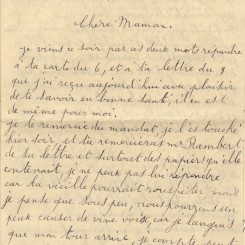 Chère Maman.
je viens ce soir par ces deux mots repondre
à ta carte du 6, et à ta lettre du 9
que j'ai reçu aujourd'hui avec plaisir
de te savoir en bonne santé, il en est
de même pour moi.
je te remercie du mandat, je l'ai touché
hier soir, et tu remercieras Mr Rambert
de sa lettre et surtout des papiers qu'elle
contenait, je ne peux pas lui repondre
car ta vieille pourrait mais
je pense que sous peu, nous pourrons en
peux causer de vive voix, car je languis
que mon tour arrive, je compte